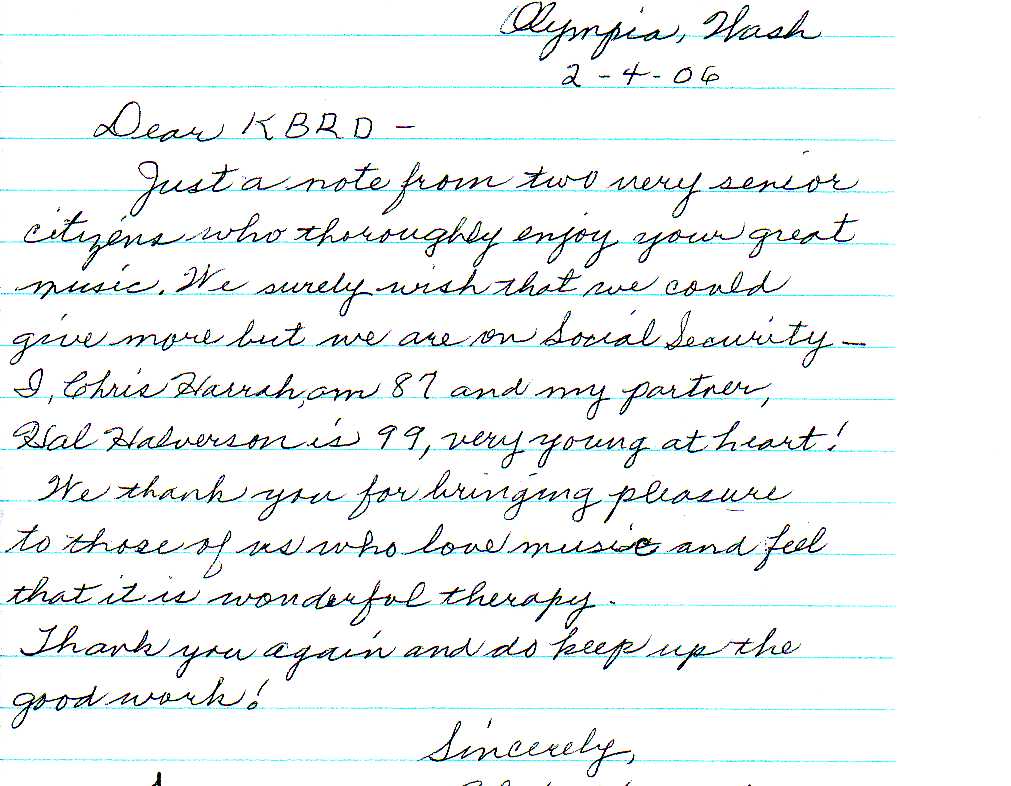 Olympia, Wash
2-4-06
Dear KBRD -
Just a note from two very senior
citizens who thoroughly enjoy your great
music. We surely wish that we could
give more but we are on Social Security -
I, Chris Harrah, am 87 and my partner,
Hal Halverson is 99, very young at heart!
We thank you for bringing pleasure
to those of us who love music and feel
that it is wonderful therapy.
Thank you again and do keep up the
good work!
Sincerely,